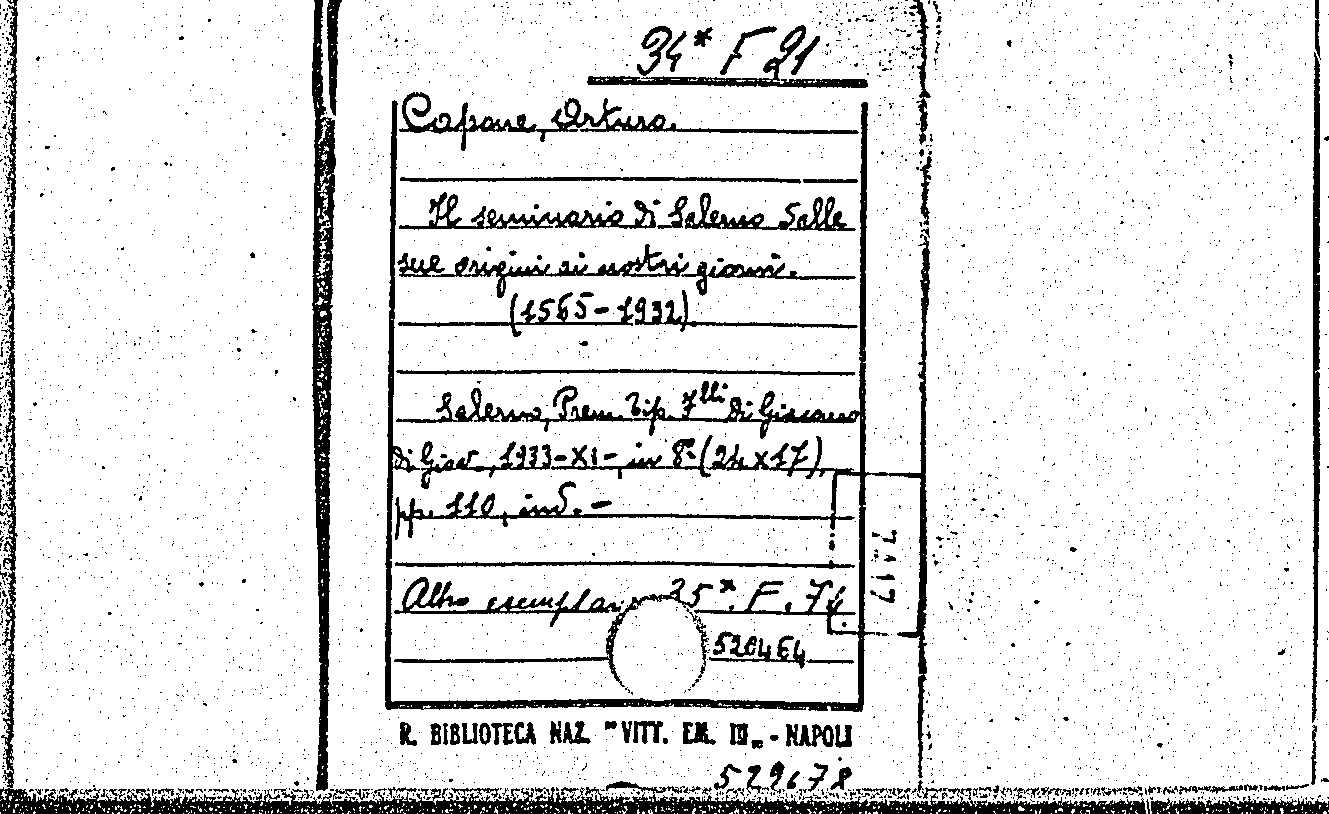 34* F 21
Capone, Arturo.
Il seminario di Salerno dalle
sue origini ai nostri giorni.
(1565-1932)
Salerno, Prem. Tip. Flli di Giacomo
di Giov., 1933-XI-, in 8°-(24x17),
pp. 110, ind. -
Altro esemplare 35*. F. 74
520464
R. BIBLIOTECA NAZ. "VITT. EM. III„ - NAPOLI
529678